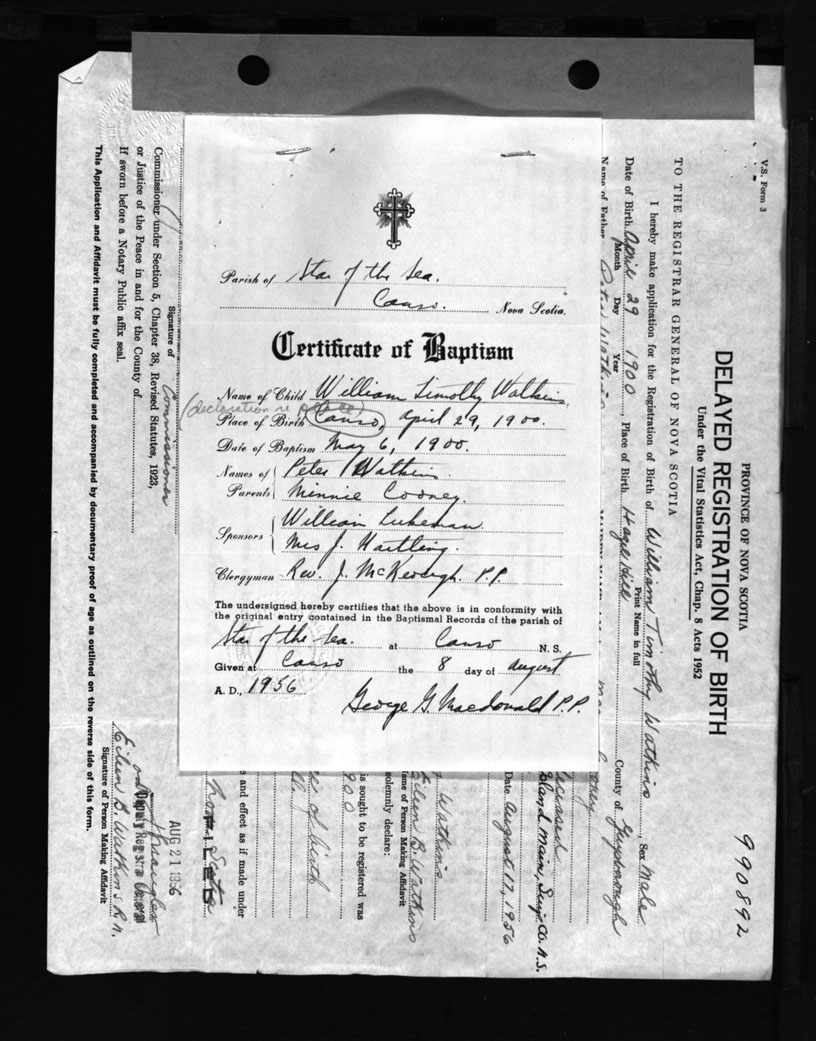 Parish of Star of the Sea.
Canso. Nova Scotia.
Certificate of Baptism
Name of Child William Timothy Watkins,
(declaration re place)
Place of Birth Canso, April 29, 1900.
Date of Baptism May 6, 1900.
Names of Parents Peter Watkins.
Minnie Cooney.
Sponsors William Lukeman.
Mrs J. Hartling.
Clergyman Rev. J. McKeough. P.P.
The undersigned hereby certifies that the above is in conformity with
the original entry contained in the Baptismal Records of the parish of
Star of the Sea. at Canso N.S.
Given at Canso the 8 day of August
A. D., 1956
George G. Macdonald P.P.
V.S. Form 3
990892
PROVINCE OF NOVA SCOTIA
DELAYED REGISTRATION OF BIRTH
Under the Vital Statistics Act, Chap. 8 Acts 1952
TO THE REGISTRAR GENERAL OF NOVA SCOTIA
I hereby make application for the Registration of Birth of William Timothy Watkins Sex Male
Print Name in full
Date of Birth April 29 1900, Place of Birth Hazel Hill County of Guysborough
Month Day Year
Name of Father Peter Watkins
Deceased
Island
Date August 17, 1956
Watkins
Eileen B. Watkins
Name of Person Making Affidavit
solemnly declare:
is sought to be registered was
900
of birth
and effect as if made under
Scotia
FILED
AUG 21 1956
Deputy Registrar General
Signature of Commissioner
Commissioner under Section 5, Chapter 38, Revised Statutes, 1923,
or Justice of the Peace in and for the County of
If sworn before a Notary Public affix seal.
Eileen B. Watkins R.N.
Signature of Person Making Affidavit
This Application and Affidavit must be fully completed and accompanied by documentary proof of age as outlined on the reverse side of this form.